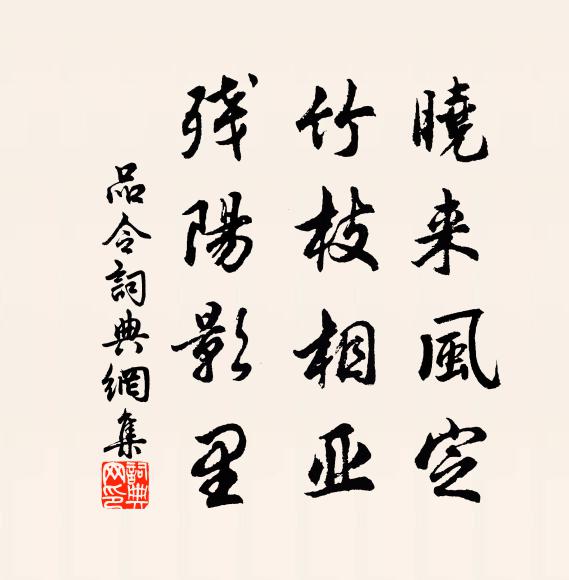 曉来風定
竹枝相亚
残陽影里
品令詞典網集
詞典网印